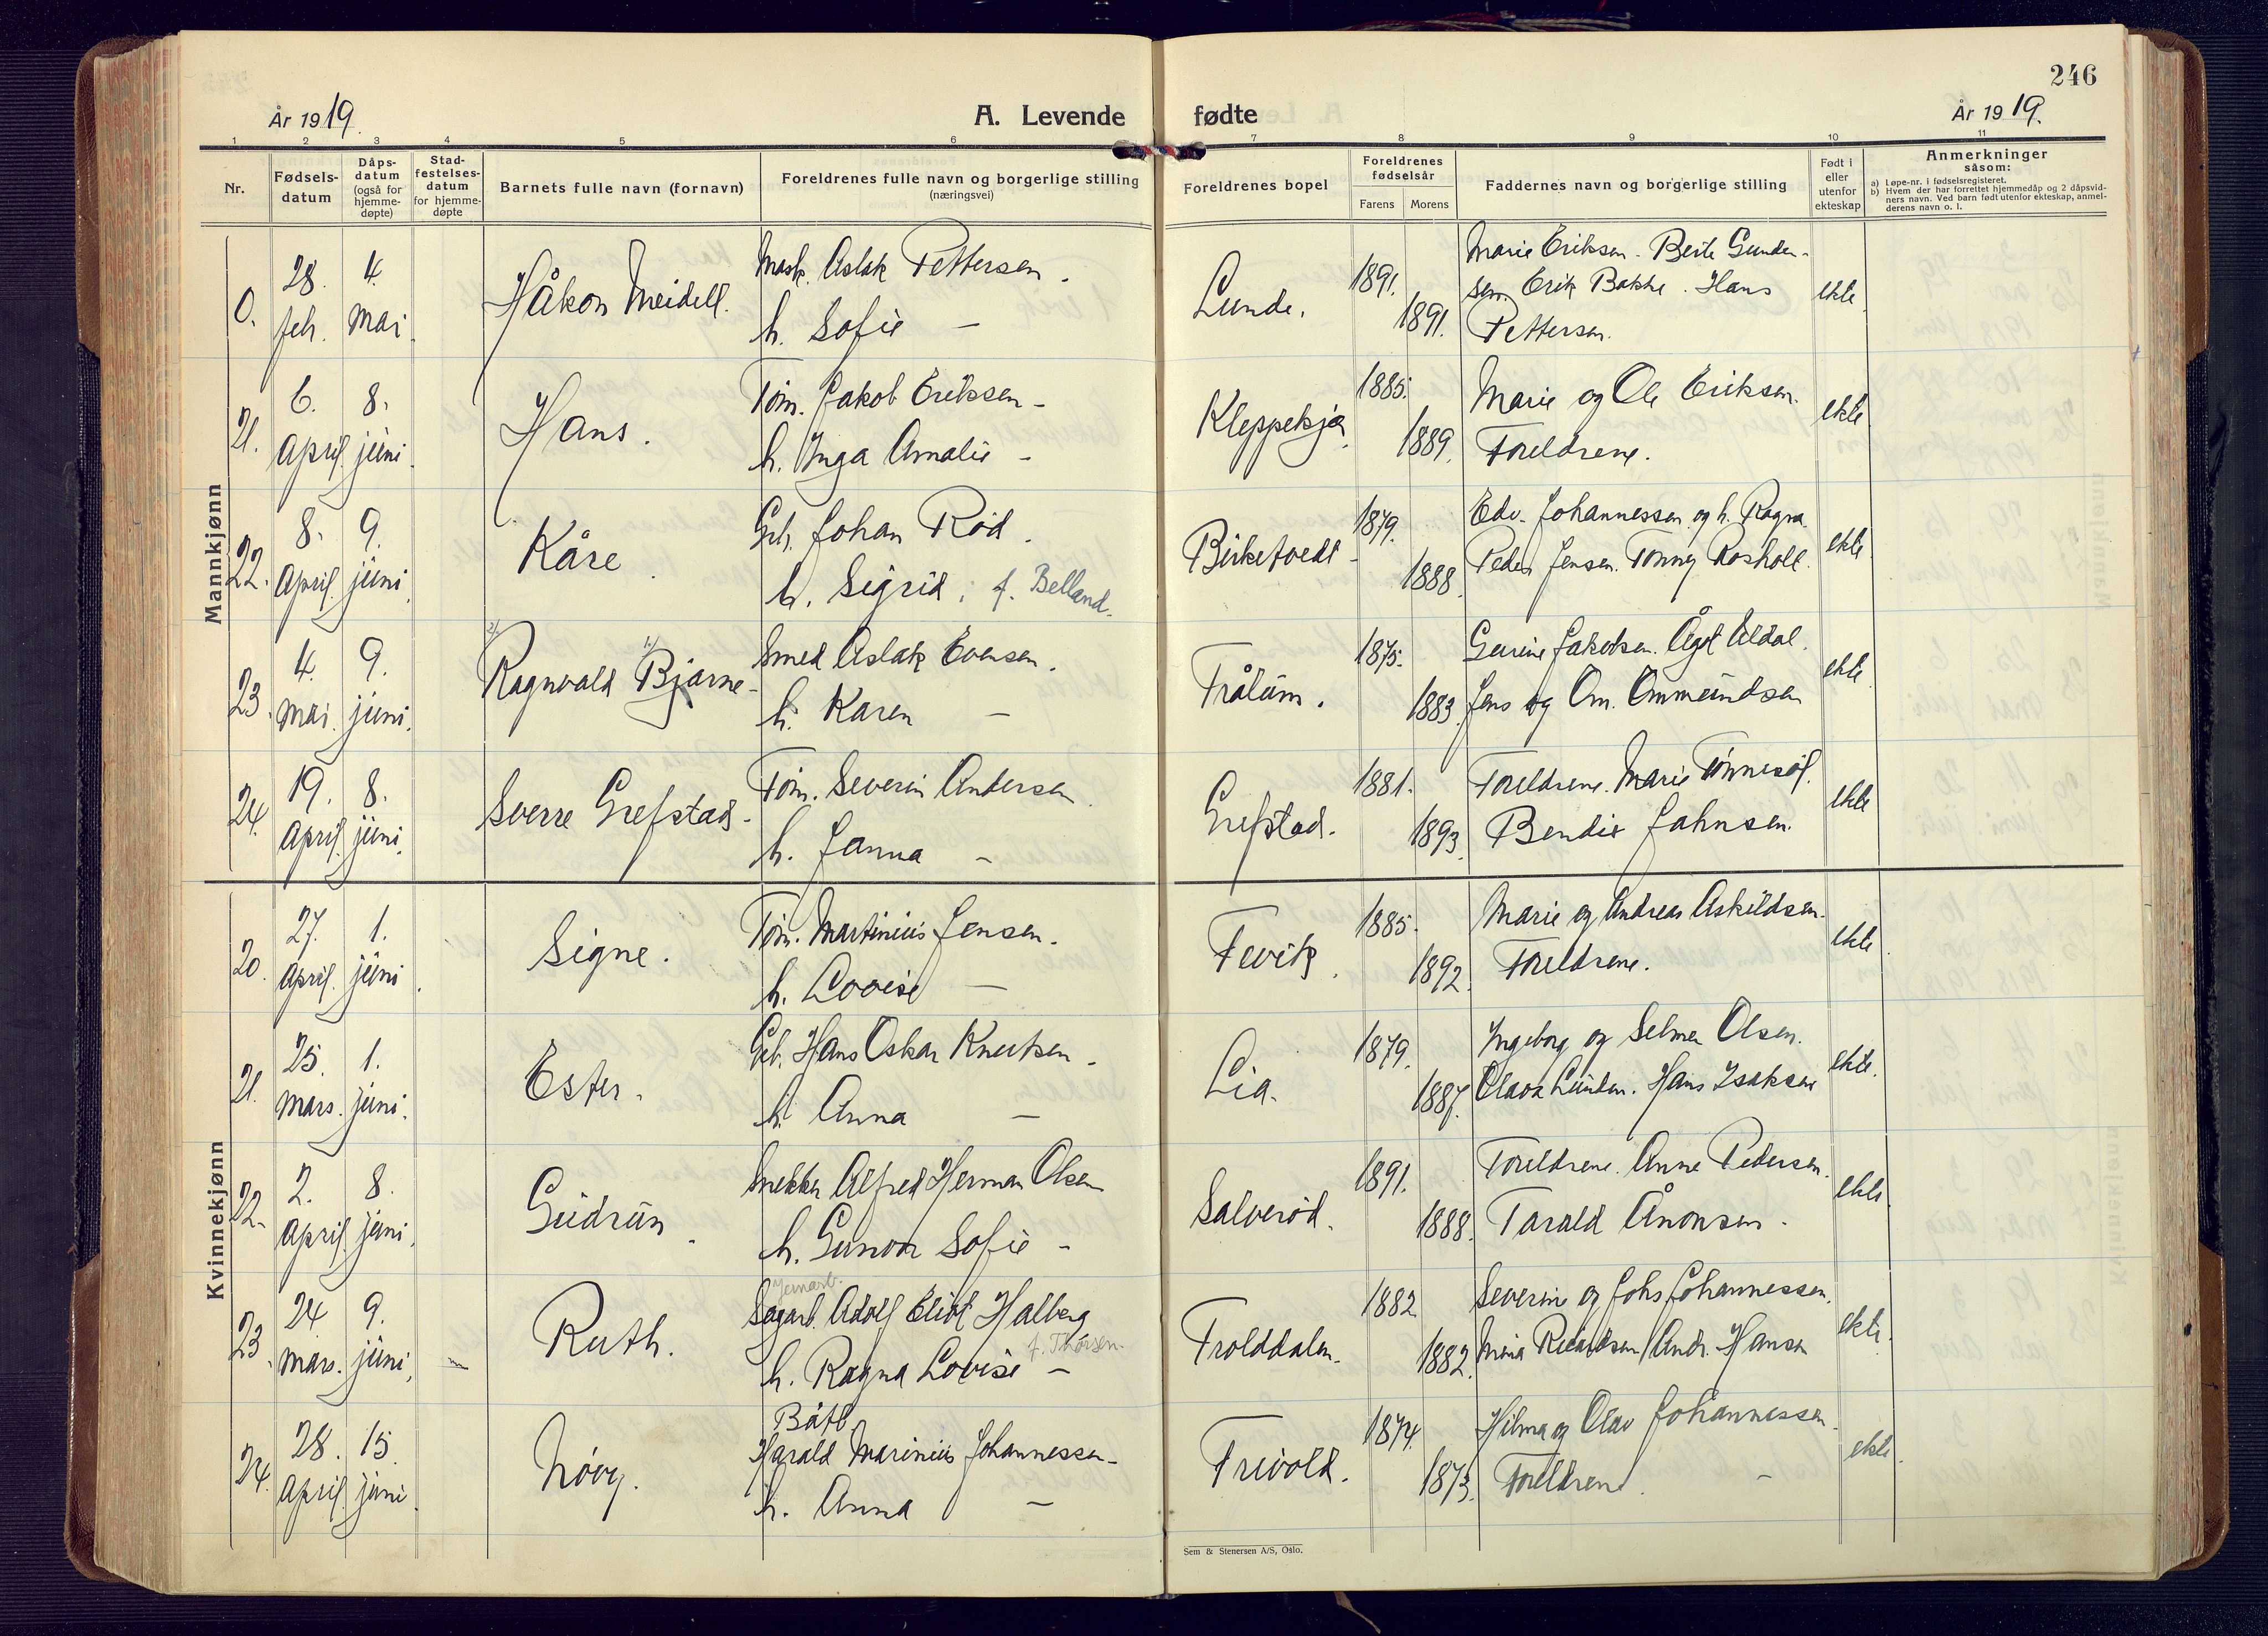 246
År 1919.
A. Levende fødte
År 1919.
1 2 3 4 5 6 7 8 9 10 11
Nr.
Fødsels-
datum
Dåps-
datum
(også for
hjemme-
døpte)
Stad-
festelses-
datum
for hjemme-
døpte
Barnets fulle navn (fornavn)
Foreldrenes fulle navn og borgerlige stilling
(næringsvei)
Foreldrenes bopel
Foreldrenes
fødselsår
Farens Morens
Faddernes navn og borgerlige stilling
Født i
eller
utenfor
ekteskap
Anmerkninger
såsom:
a) Løpe-nr. i fødselsregisteret.
b) Hvem der har forrettet hjemmedåp og 2 dåpsvid-
ners navn. Ved barn født utenfor ekteskap, anmel-
derens navn o. l.
Mannkjønn
0. 28. feb. 4. mai. Håkon Meidell.
Mask. Aslak Pettersen.
h. Sofie —
Lunde. 1891. 1891.
Marie Eriksen. Berte Gunder-
sen. Erik Bakke. Hans
Pettersen.
ekte
21. 6. April. 8. juni. Hans.
Tøm. Jakob Eriksen -
h. Inga Amalie -
Kleppekjær 1885. 1889.
Marie og Ole Eriksen.
Foreldrene.
ekte
22. 8. April. 9. juni. Kåre.
Grb. Johan Rød.
h. Sigrid, f. Belland.
Birketvedt - 1879. 1888.
Edv. Johannessen og h. Ragna.
Peder Jensen. Tonny Rosholt.
ekte
23. 4. mai. 9. juni. 2/ Ragnvald 1/ Bjarne -
Smed Aslak Evensen.
h. Karen —
Frålum. 1875. 1883.
Gurine Jakobsen. Ågot Uldal.
Jens og Om. Ommundsen
ekte
24. 19. April. 8. juni. Sverre Grefstad -
Tøm. Severin Andersen.
h. Janna -
Grefstad. 1881. 1893.
Foreldrene. Marie Tønnesøl.
Bendix Jahnsen.
ekte
Kvinnekjønn
20. 27. April. 1. juni. Signe.
Tøm. Martinius Jensen.
h. Lovise —
Fevik. 1885. 1892.
Marie og Andreas Askildsen.
Foreldrene.
ekte
21. 25. mars. 1. juni. Ester.
Grb. Hans Oskar Knutsen -
h. Anna —
Lia. 1879. 1887.
Ingeborg og Selmer Olsen.
Olava Lunden. Hans Isaksen
ekte.
22. 2. April. 8. juni. Gudrun.
Snekker Alfred Herman Olsen
h. Gunvor Sofie -
Salverød. 1891. 1888.
Foreldrene. Anne Pedersen.
Tarald Ånonsen.
ekte
23. 24. mars. 9. juni. Ruth.
Jernarb.
Sagarb. Adolf Eliot Halberg
f. Thorsen.
h. Ragna Lovise -
Frolddalen. 1882 1882.
Severine og Johs Johannessen.
Mina Rikardsen, Andr. Hansen
ekte.
24. 28. April 15. juni. Nóvy.
Båtb.
Harald Marinius Johannessen -
h. Anna —
Frivold. 1874. 1873.
Hilma og Olav Johannessen.
Foreldrene. -
ekte.
Sem & Stenersen A/S, Oslo.